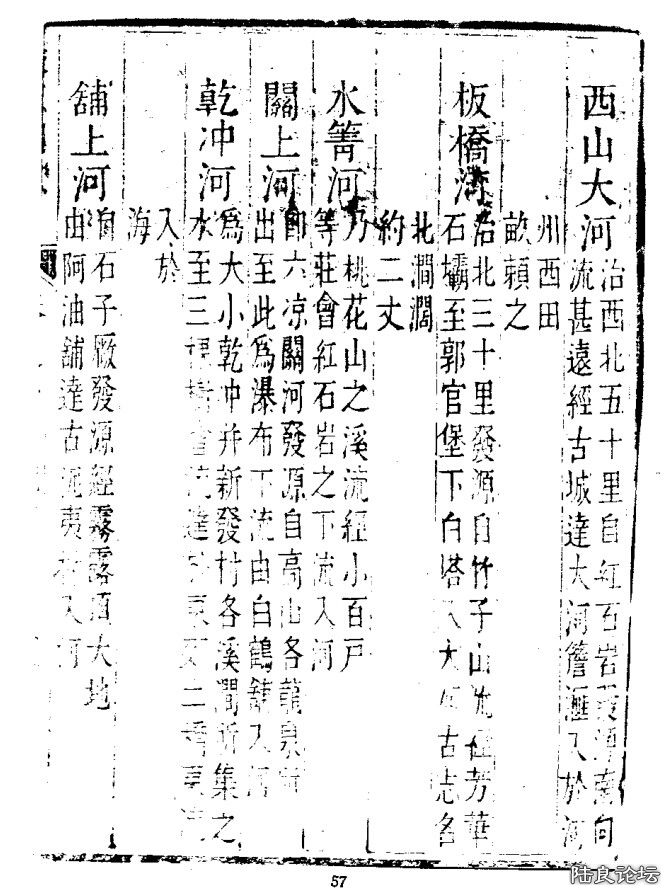 西山大河
治西北五十里自紅石岩發源南向
流甚遠經古城達大河舊滙入於河
州西田
畝賴之
板橋河
治北三十里發源自竹子山流經芳華
石壩至郭官堡下白塔入大河古志名
北澗濶
約二丈
水箐河
乃桃花山之溪流經小百戸
等莊會紅石岩之下流入河
關上河
卽六凉關河發源自高山各龍泉
出至此爲瀑布下流由白鶴舖入河
乾冲河
爲大小乾冲幷新發村各溪澗所集之
水至三 樹會流達 二
入於
海
舖上河
有石子厰發源經霧露 大地
由阿油舖達古 夷 入河
57
陆良论坛